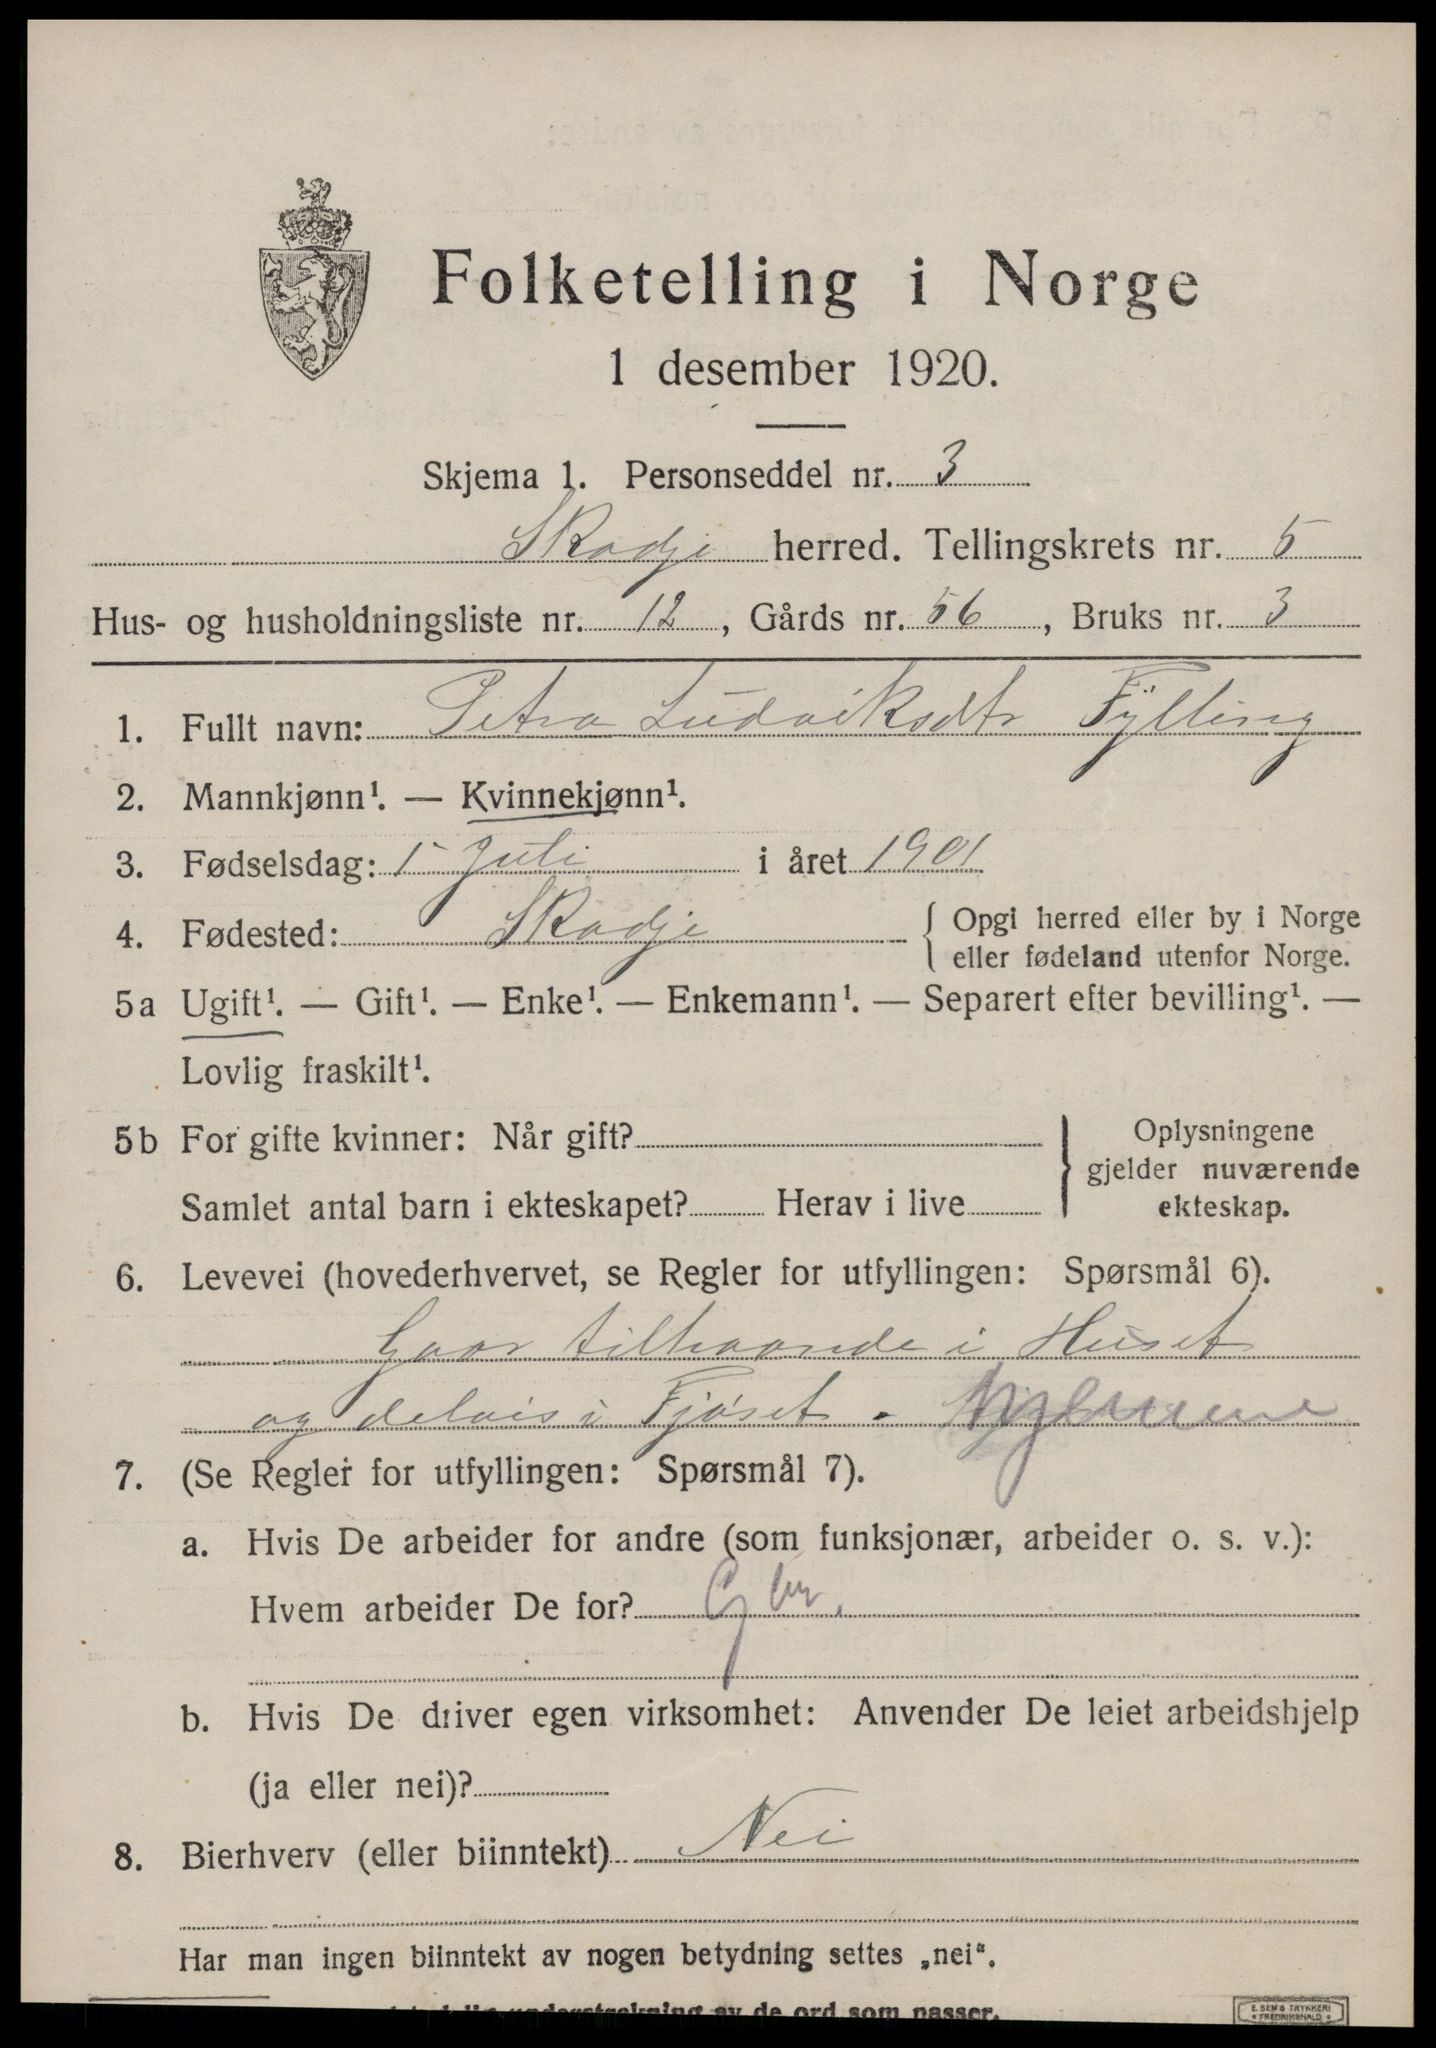 Folketelling i Norge
1 desember 1920.
Skjema 1. Personseddel nr. 3
Skodje herred. Tellingskrets nr. 5
Hus- og husholdningsliste nr. 12, Gårds nr. 56, Bruks nr. 3
1. Fullt navn: Petra Ludviksdtr Fylling
2. Mannkjønn¹. — Kvinnekjønn¹.
3. Fødselsdag: 1 juli i året 1901
4. Fødested: Skodje { Opgi herred eller by i Norge
eller fødeland utenfor Norge.
5a Ugift¹. — Gift¹. — Enke¹. — Enkemann¹. — Separert efter bevilling¹. —
Lovlig fraskilt¹.
5b For gifte kvinner: Når gift? } Oplysningene
gjelder nuværende
Samlet antal barn i ekteskapet? Herav i live ekteskap.
6. Levevei (hovederhvervet, se Regler for utfyllingen: Spørsmål 6).
Gaar tilhaande i Huset
og delvis i Fjøset.
7. (Se Regler for utfyllingen: Spørsmål 7).
a. Hvis De arbeider for andre (som funksjonær, arbeider o. s. v.):
Hvem arbeider De for?
b. Hvis De driver egen virksomhet: Anvender De leiet arbeidshjelp
(ja eller nei)?
8. Bierhverv (eller biinntekt) Nei
Har man ingen biinntekt av nogen betydning settes „nei“.
understrekning av de ord som passer.
E. SEM'S TRYKKERI
FREDRIKSHALD